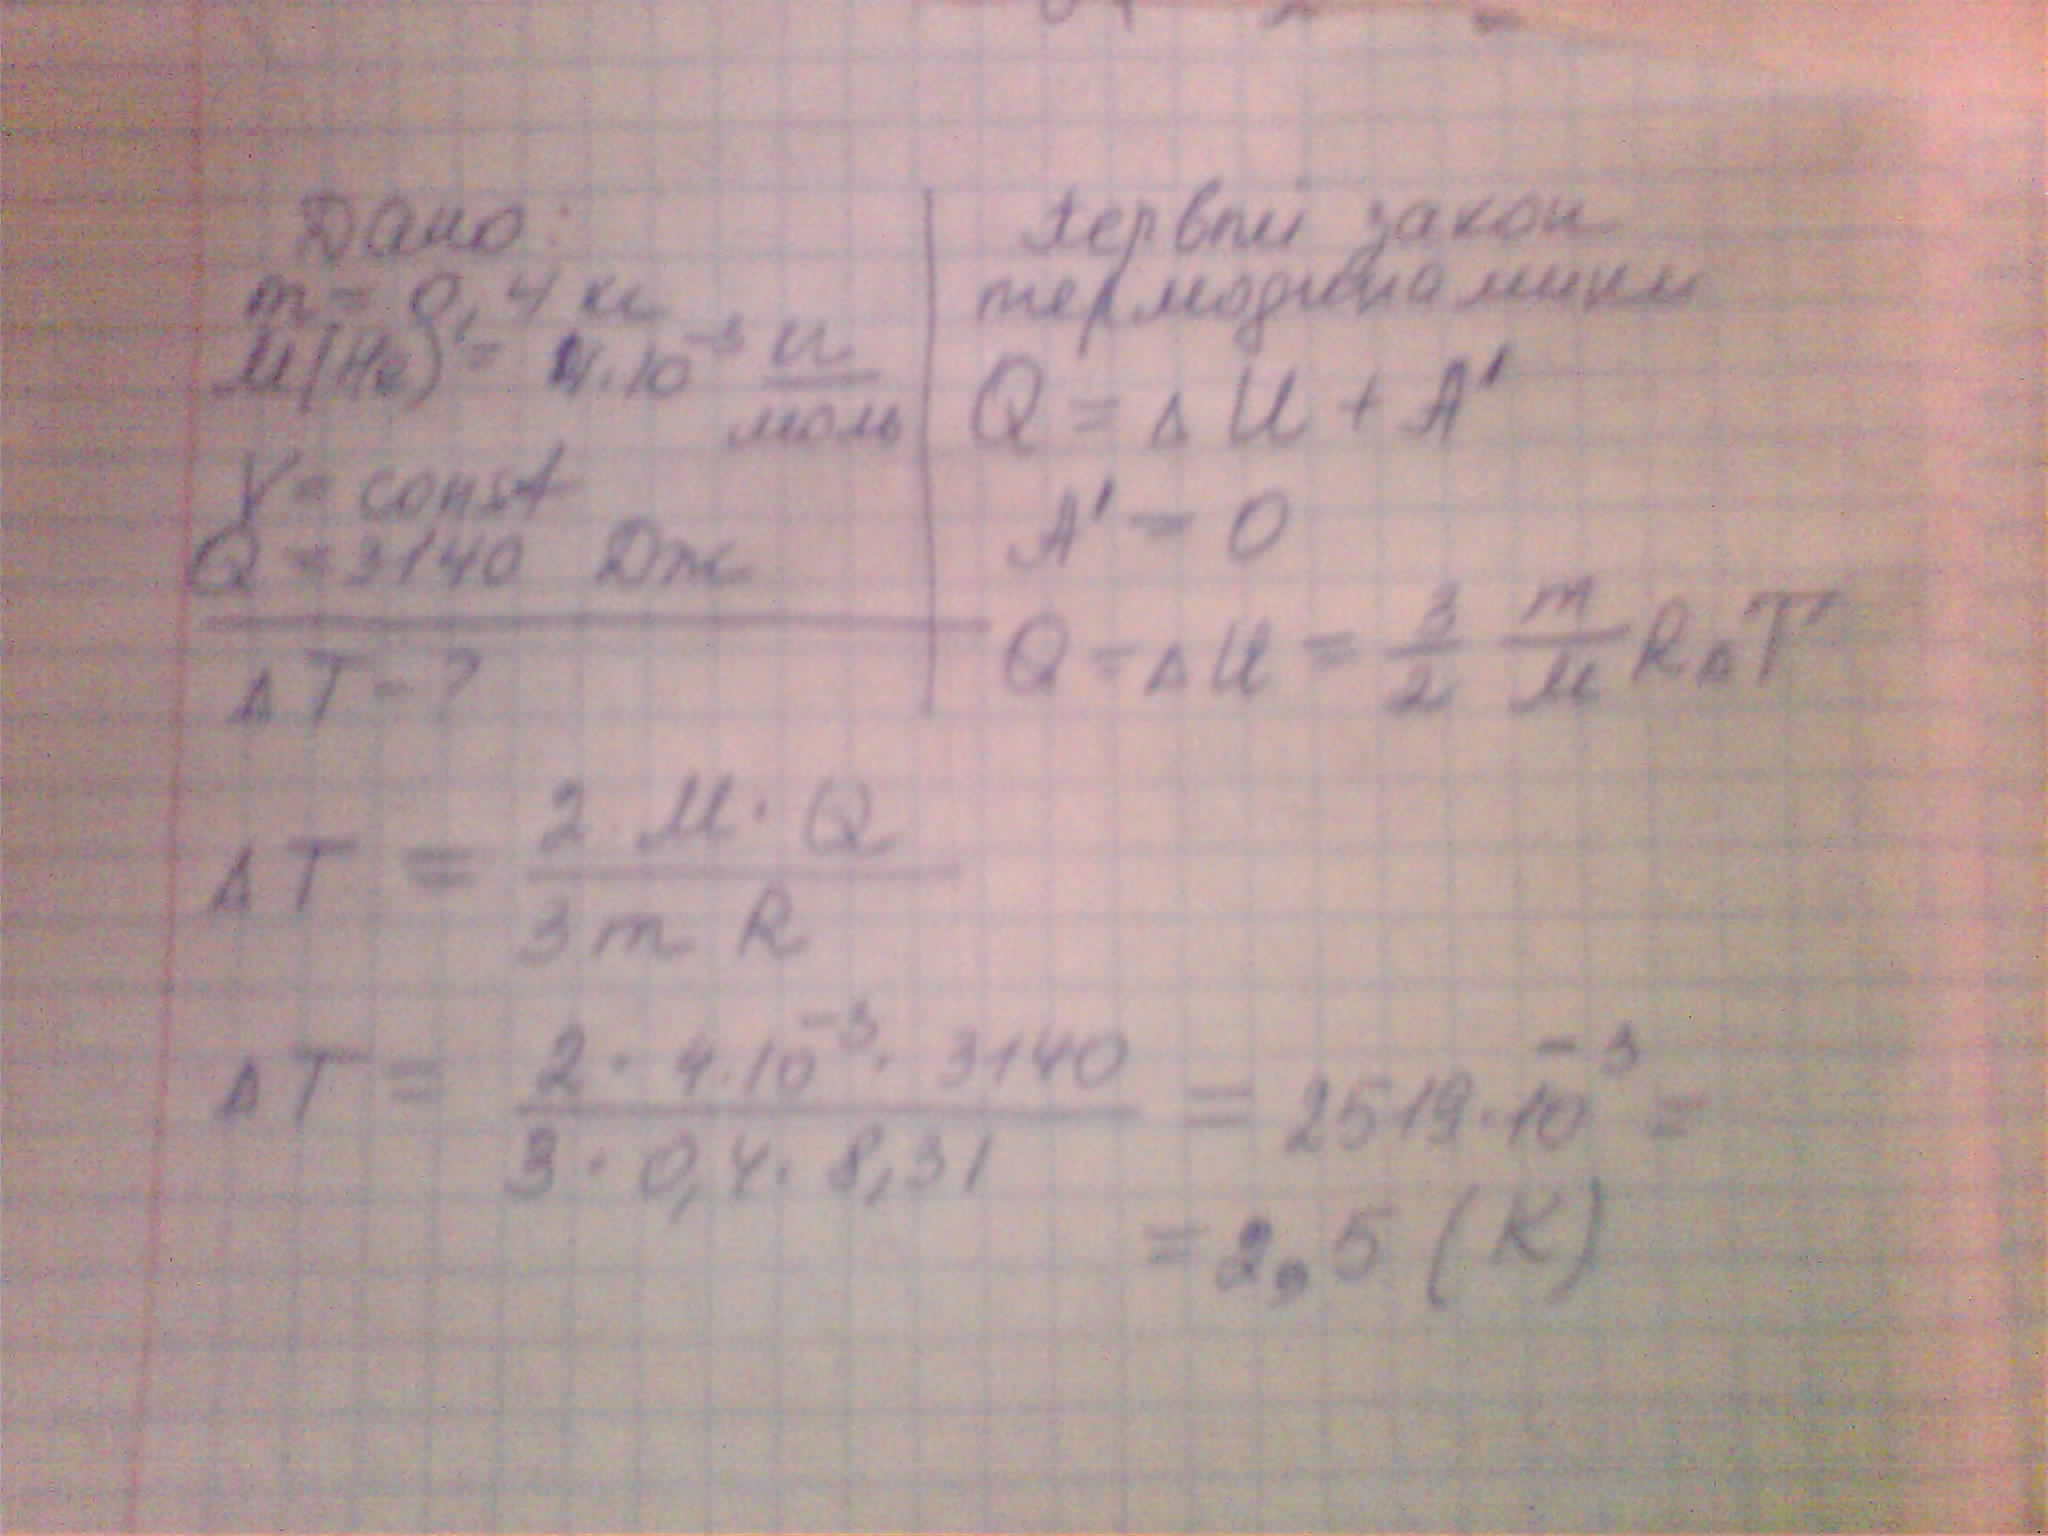 Дано:
m = 0,4 кг
M(He) = 4·10⁻³ кг/моль
V = const
Q = 3140 Дж
ΔT - ?
Первый закон
термодинамики
Q = ΔU + A'
A' = 0
Q = ΔU = 3/2 m/M RΔT
ΔT = 2 M · Q / 3 m R
ΔT = 2 · 4·10⁻³ · 3140 / 3 · 0,4 · 8,31 = 2519·10⁻³ =
= 2,5 (K)